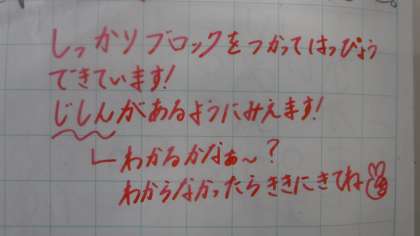 しっかりブロックをつかってはっぴょう
できています!
じしんがあるようにみえます!
わかるかなぁ〜?
わからなかったらききにきてね